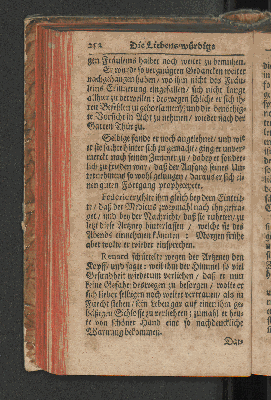 252 Die Liebens-würdige
gen Fräuleins halber noch weiter zu bemühen.
Er würde so vergnügten Gedancken weiter
nachgehangen haben / wo ihm nicht des Fräu-
leins Erinnerung eingefallen / sich nicht lange
allhier zu verweilen; deswegen schliche er sich ih-
ren Befehlen zu gehorsamen / und die benöthig-
te Vorsicht in Acht zu nehmen / wieder nach der
Garten Thür zu.
Selbige fande er noch angelehnet / und wie
er sie sachte hinter sich zu gemacht / ging er unver-
merckt nach seinen Zimmer zu / dabey er sonder-
lich zu frieden war / daß der Anfang seines Un-
ternehmens so wohl gelungen / daraus er sich ei-
nen guten Fortgang prophezeyete.
erzehlte ihm gleich bey dem Eintrit-
te / daß der Medicus zweymahl nach ihm gefra-
get / und bey der Nachricht / daß sie ruheten / zu
letzt diese Artzney hinterlassen / welche sie des
Abends einnehmen könten; Morgen frühe
aber wolte er wieder einsprechen.
Renard schüttelte wegen der Artzeney den
Kopff / und sagte: weil ihm der Himmel so viel
Gesundheit wiederum verliehen / daß er nun
keine Gefahr deswegen zu besorgen / wolte er
sich lieber selbigen noch weiter vertrauen / als in
Furcht stehen / sein Leben gar auf einer ihm ge-
hässigen Schlosse zu verliehren; zumahl er heu-
te von schöner Hand eine so nachdrückliche
Warnung bekommen.
Dar-